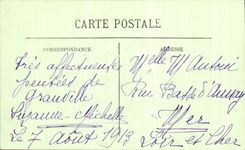 CARTE POSTALE
CORRESPONDANCE
ADRESSE
Très affectueuses
pensées de
Granville
Suzanne Michelle
Le 7 Août 1913
Melle M Antoni
Rue Basse d'Aunay
Mer
Loir et Cher